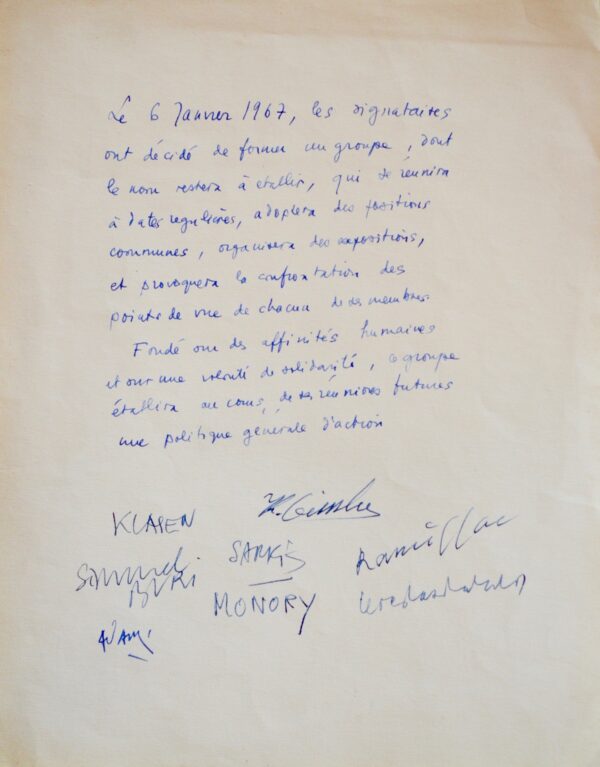 Le 6 Janvier 1967, les signataires
ont décidé de former un groupe, dont
le nom restera à etablir, qui se réunira
à dates regulières, adoptera des positions
communes, organisera des expositions,
et provoquera la confrontation des
points de vue de chacun de ses membres.
Fondé sur des affinités humaines
et sur une volonté de solidarité, ce groupe
établira au cours de ses réunions futures
une politique générale d'action
KLASEN
SARKIS
Samuel
BURI
MONORY
ADAMI